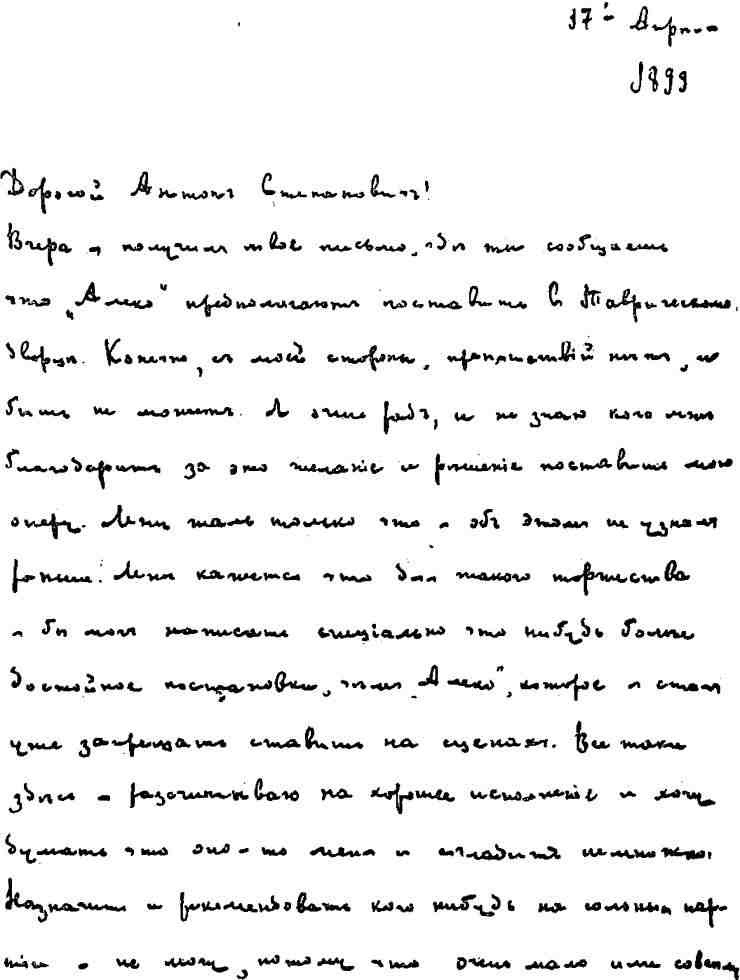 17го Апреля
1899
Дорогой Антонъ Степановичъ!
Вчера я получилъ твое письмо, гдѣ ты сообщаешь
что „Алеко“ предполагаютъ поставить в Таврическомъ
дворцѣ. Конечно, съ моей стороны, препятствій нѣтъ, и
быть не можетъ. Я очень радъ, и не знаю кого мнѣ
благодарить за это желаніе и рѣшеніе поставить мою
оперу. Мнѣ жаль только что я объ этомъ не узналъ
раньше. Мнѣ кажется что для такого торжества
я бы могъ написать спеціально что нибудь болѣе
достойное постановки, чѣмъ „Алеко“, которое я сталъ
уже запрещать ставить на сценахъ. Все таки
здѣсь я разсчитываю на хорошее исполненіе и хочу
думать что оно-то меня и сгладитъ немножко.
Назначить и рекомендовать кого нибудь на сольныя пар-
тіи я не могу, потому что очень мало или совсѣмъ